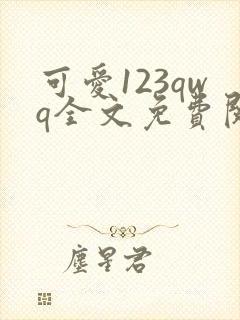 可愛123qw
q全文免費
塵星君